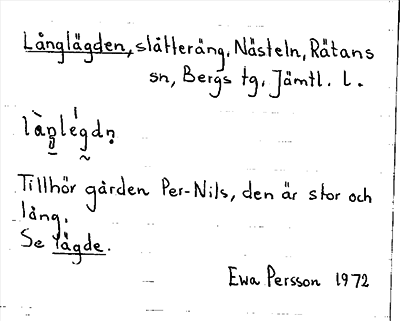 Långlägden, slåtteräng, Nästeln, Rätans
sn, Bergs tg, Jämtl. l.
Tillhör gården Per-Nils, den är stor och
lång.
Se lägde.
Ewa Persson 1972